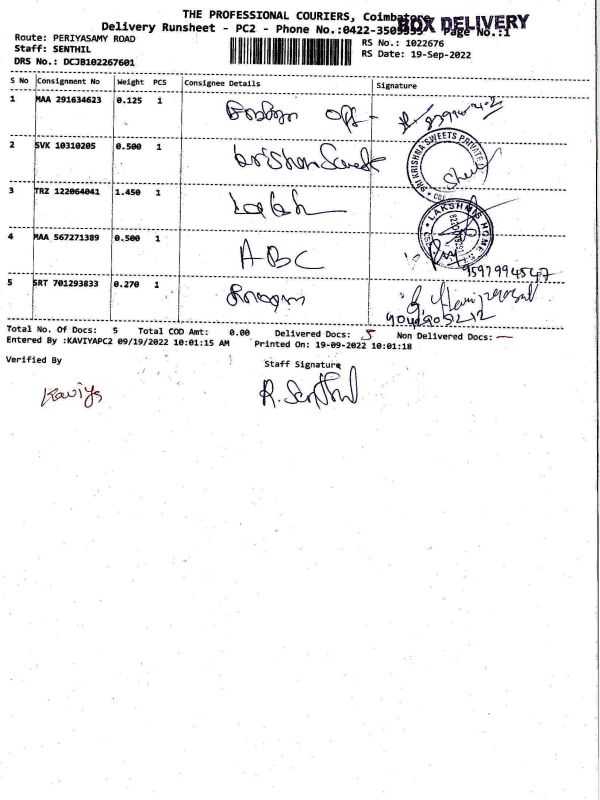 THE PROFESSIONAL COURIERS, Coimbatore
BOX DELIVERY
Delivery Runsheet - PC2 - Phone No.:0422-3505353 Page No.:1
Route: PERIYASAMY ROAD
RS No.: 1022676
Staff: SENTHIL
RS Date: 19-Sep-2022
DRS No.: DCJB102267601
S No Consignment No Weight PCS Consignee Details Signature
1 MAA 291634623 0.125 1
2 SVK 10310205 0.500 1 krishna Sweets
SRI KRISHNA SWEETS PRIVATE
3 TRZ 122064041 1.450 1
LAKSHMIS HOME
4 MAA 567271389 0.500 1 ABC
9597994547
5 SRT 701293833 0.270 1
Total No. Of Docs: 5 Total COD Amt: 0.00 Delivered Docs: 5 Non Delivered Docs: —
Entered By :KAVIYAPC2 09/19/2022 10:01:15 AM Printed On: 19-09-2022 10:01:18
Verified By
Staff Signature
Kaviya
R. Senthil